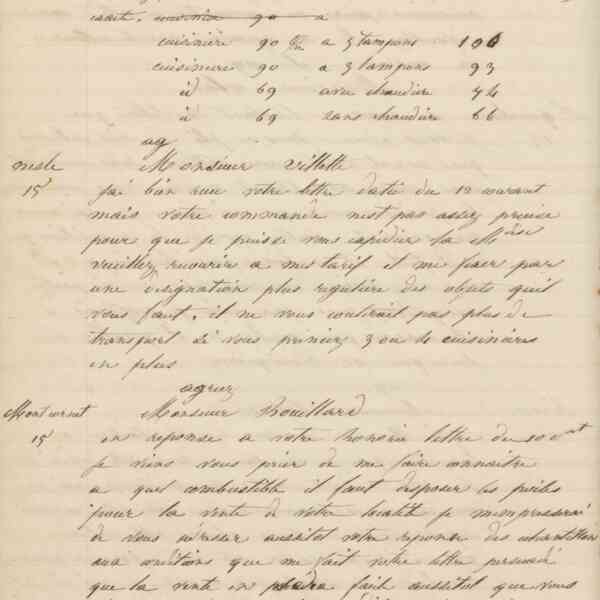 cuisinière 90 c/m a 3 tampons 106
cuisiniere 90 a 3 tampons 93
id 69 avec chaudière 74
id 69 sans chaudière 66
ag
nesle Monsieur Villette
15 jai bien recu votre lettre daté du 12 courant
mais votre commande n'est pas assez precise
pour que je puisse vous expédier la M dise
veuillez recourir a mes tarif et me fixer par
une désignation plus reguliere des objets quil
vous faut, il ne vous couterait pas plus de
transport si vous preniez 3 ou 4 cuisinieres
en plus
agreez
Montcornet Monsieur Rouillard
15 en reponse a votre honorée lettre du 10 cnt
je viens vous prier de me faire connaitre
a quel combustible il faut disposer les poêles
pour la vente de votre localité je m'empresserai
de vous adresser aussitot votre reponse des echantillons
aux conditions que me fait votre lettre persuadé
que la vente en sera facile aussitot que vous